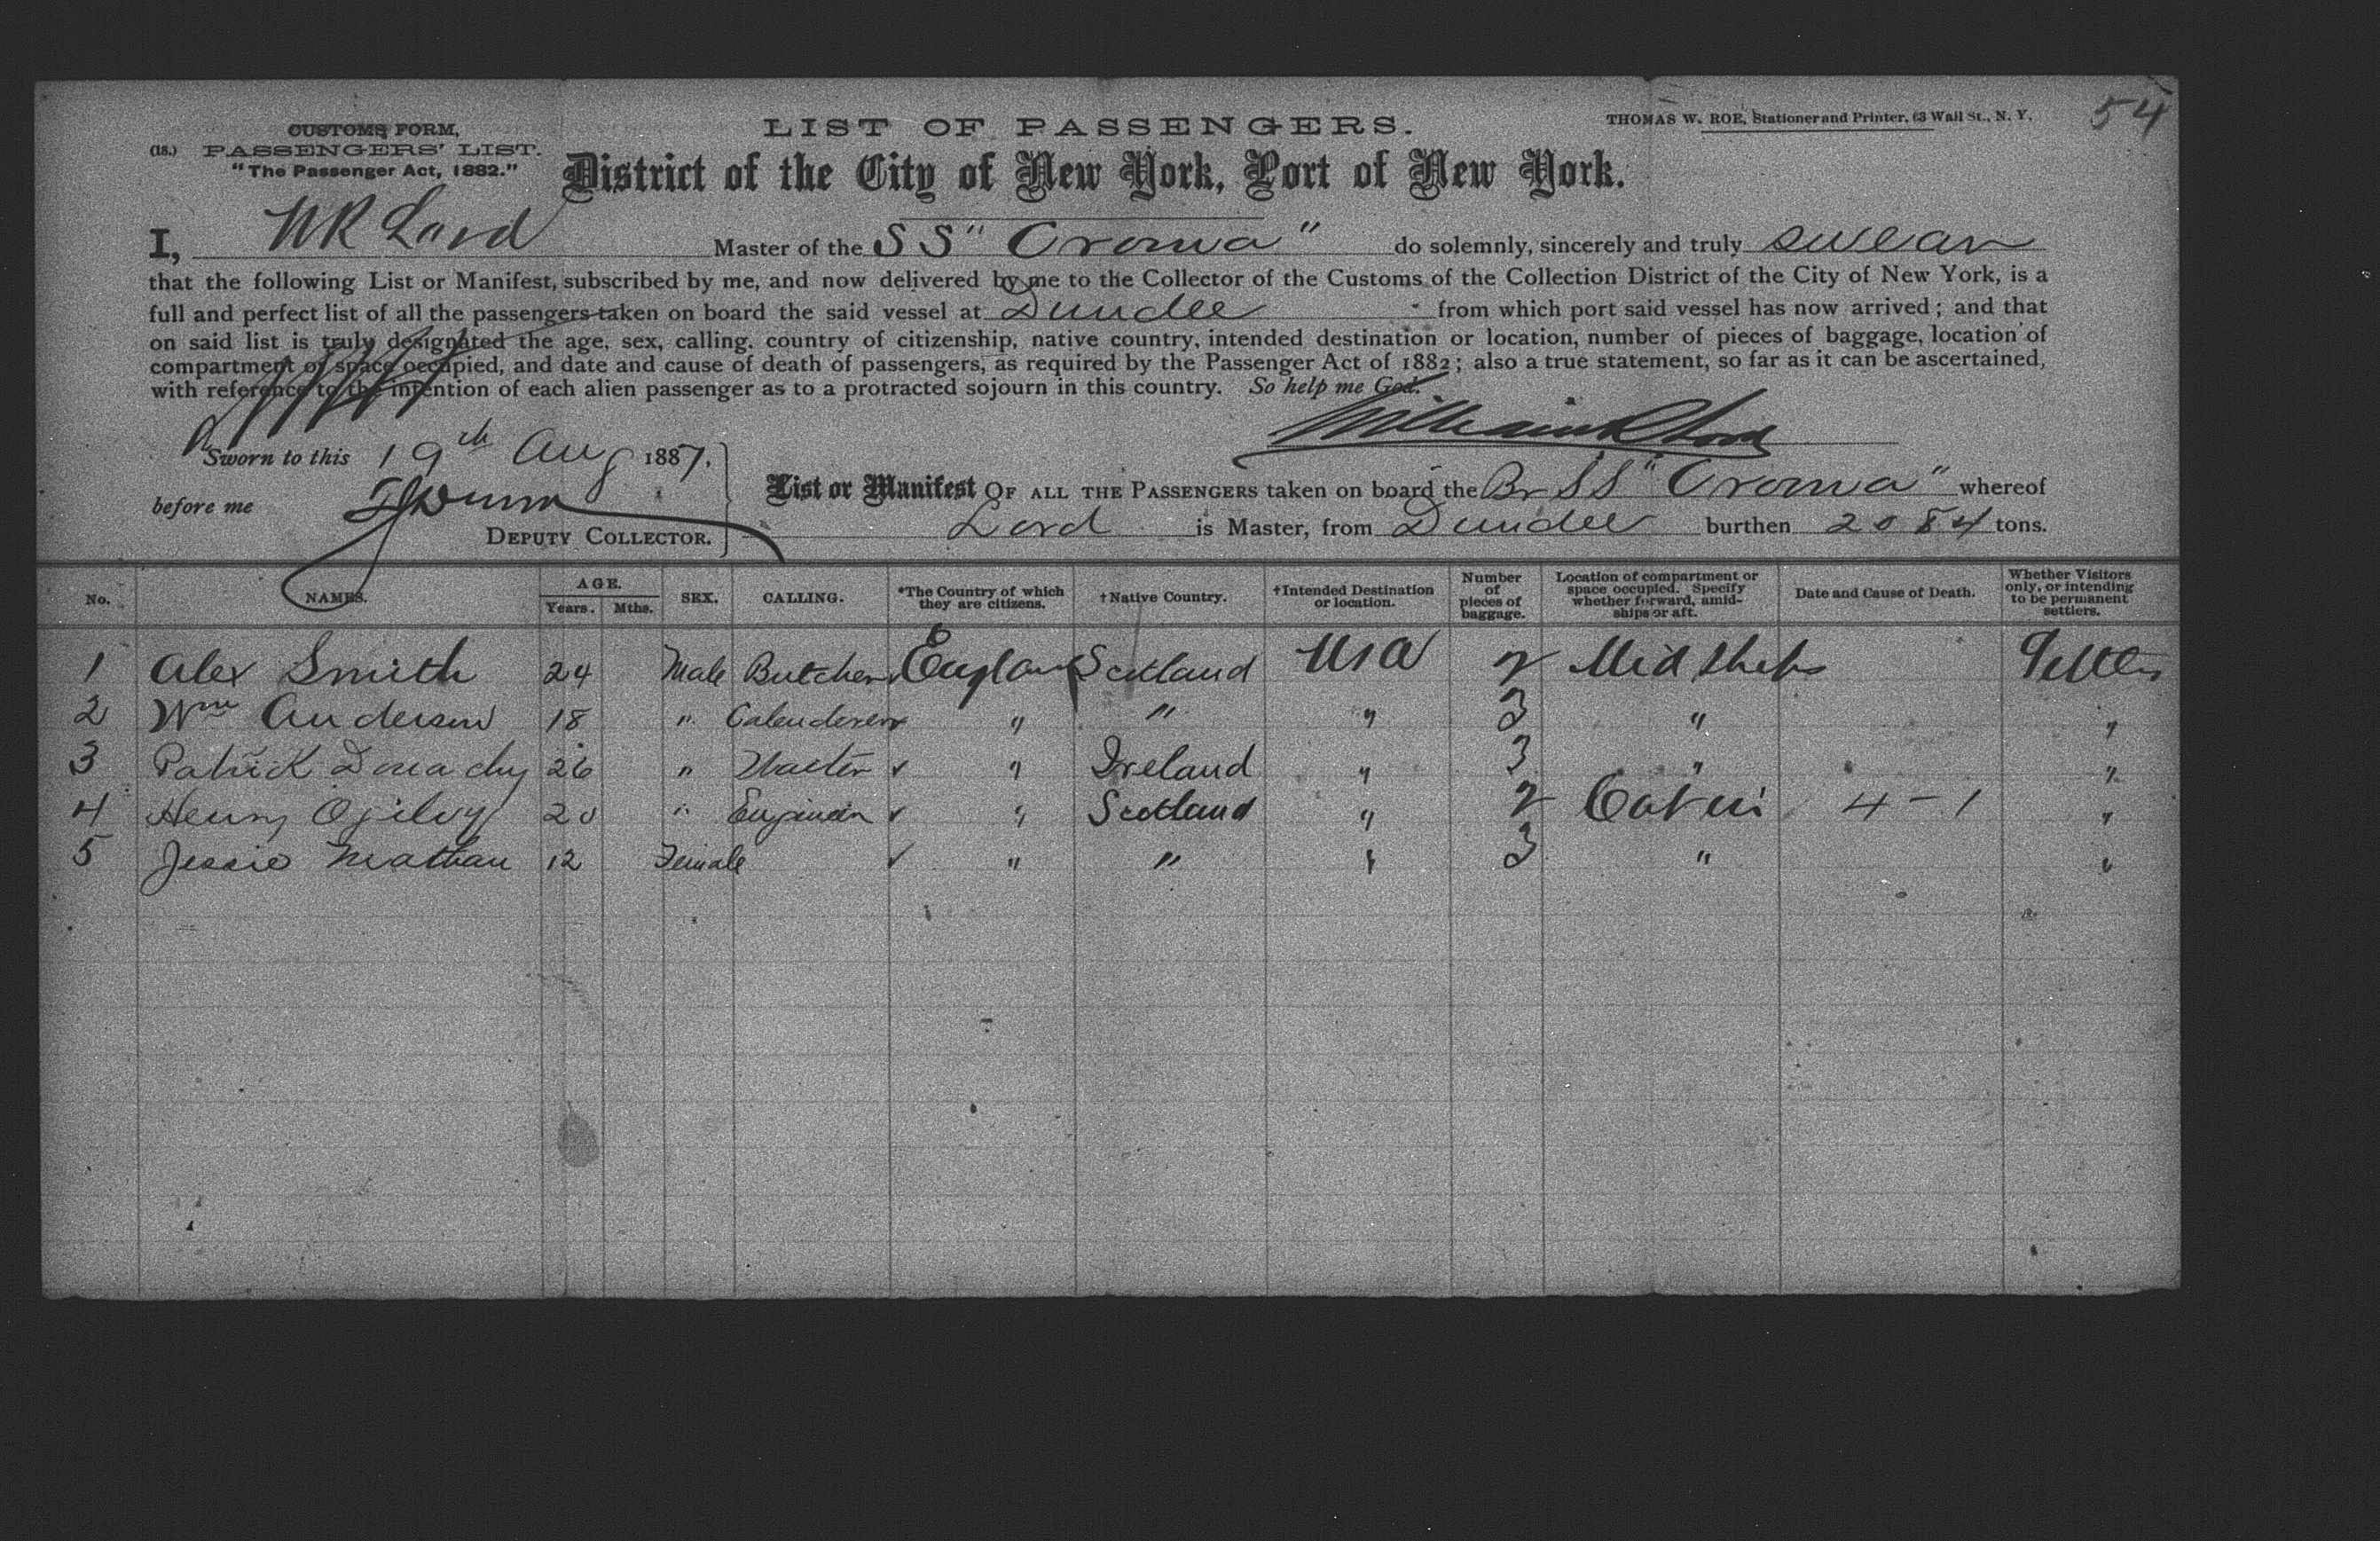 54
CUSTOMS FORM,
(18.) PASSENGERS' LIST.
"The Passenger Act, 1882."
LIST OF PASSENGERS.
THOMAS W. ROE, Stationer and Printer, 63 Wall St., N. Y.
District of the City of New York, Port of New York.
I, WR Lord Master of the SS "Croma" do solemnly, sincerely and truly swear
that the following List or Manifest, subscribed by me, and now delivered by me to the Collector of the Customs of the Collection District of the City of New York, is a
full and perfect list of all the passengers taken on board the said vessel at Dundee from which port said vessel has now arrived; and that
on said list is truly designated the age, sex, calling, country of citizenship, native country, intended destination or location, number of pieces of baggage, location of
compartment or space occupied, and date and cause of death of passengers, as required by the Passenger Act of 1882; also a true statement, so far as it can be ascertained,
with reference to the intention of each alien passenger as to a protracted sojourn in this country. So help me God.
William R Lord
Sworn to this 19th Aug 1887.
before me
DEPUTY COLLECTOR.
List or Manifest OF ALL THE PASSENGERS taken on board the Br SS "Croma" whereof
Lord is Master, from Dundee burthen 2084 tons.
No. NAMES. AGE. Years. Mths. SEX. CALLING. *The Country of which they are citizens. †Native Country. †Intended Destination or location. Number of pieces of baggage. Location of compartment or space occupied. Specify whether forward, amidships or aft. Date and Cause of Death. Whether Visitors only, or intending to be permanent settlers.
1 Alex Smith 24 Male Butcher England Scotland USA 2 Mid Ships
2 Wm Anderson 18 " Calenderer " " " 3 " "
3 Patrick Donachy 26 " " Ireland " 3 " "
4 Henry Ogilvy 20 " Engineer " Scotland " 2 Cabin 4-1 "
5 Jessie 12 Female " " " 3 " "